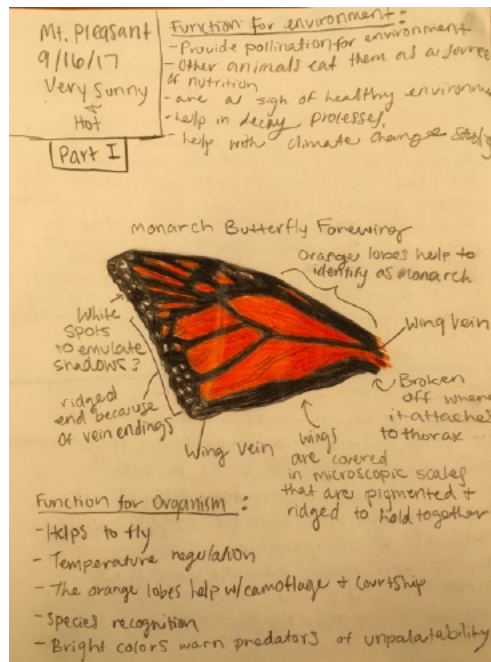 Mt. Pleasant
9/16/17
Very Sunny
+
Hot
Part I
Function for environment:
- Provide pollination for environment
- Other animals eat them as a source
of nutrition
- are a sign of healthy environme
- help in decay processes,
- help with climate change
Monarch Butterfly Forewing
orange lobes help to
identify as monarch
White
spots
to emulate
shadows?
ridged
end because
of vein endings
Wing vein
Wing vein
Broken
off where
it attaches
to thorax
wings
are covered
in microscopic scales
that are pigmented +
ridged to hold together
Function for Organism:
- Helps to fly
- Temperature regulation
- The orange lobes help w/camoflage + courtship
- Species recognition
- Bright colors warn predators of unpalatability